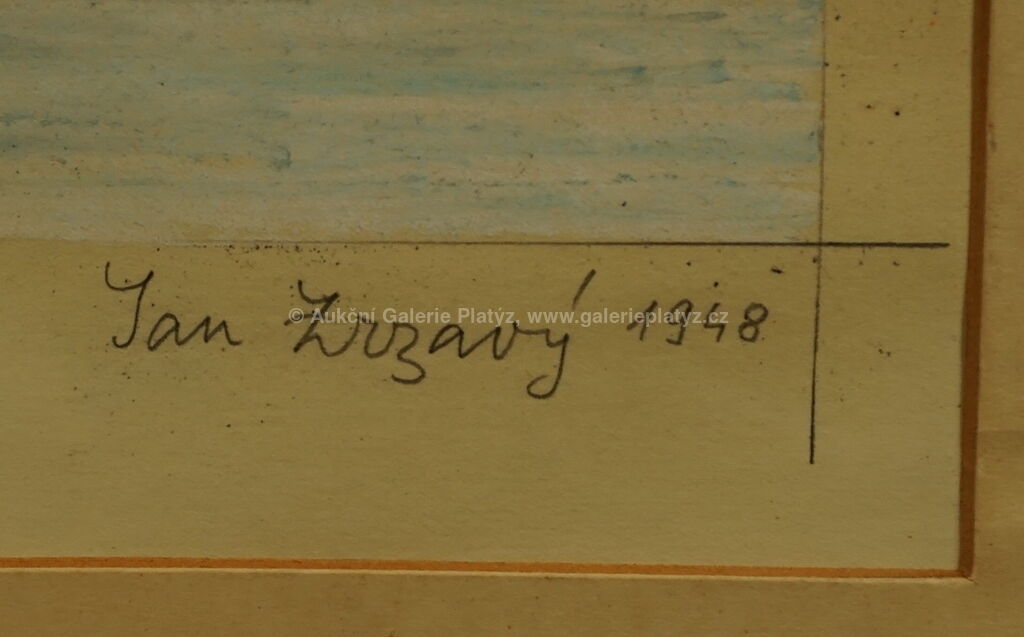 Jan Zrzavý 1948
© Aukční Galerie Platýz, www.galerieplatyz.cz